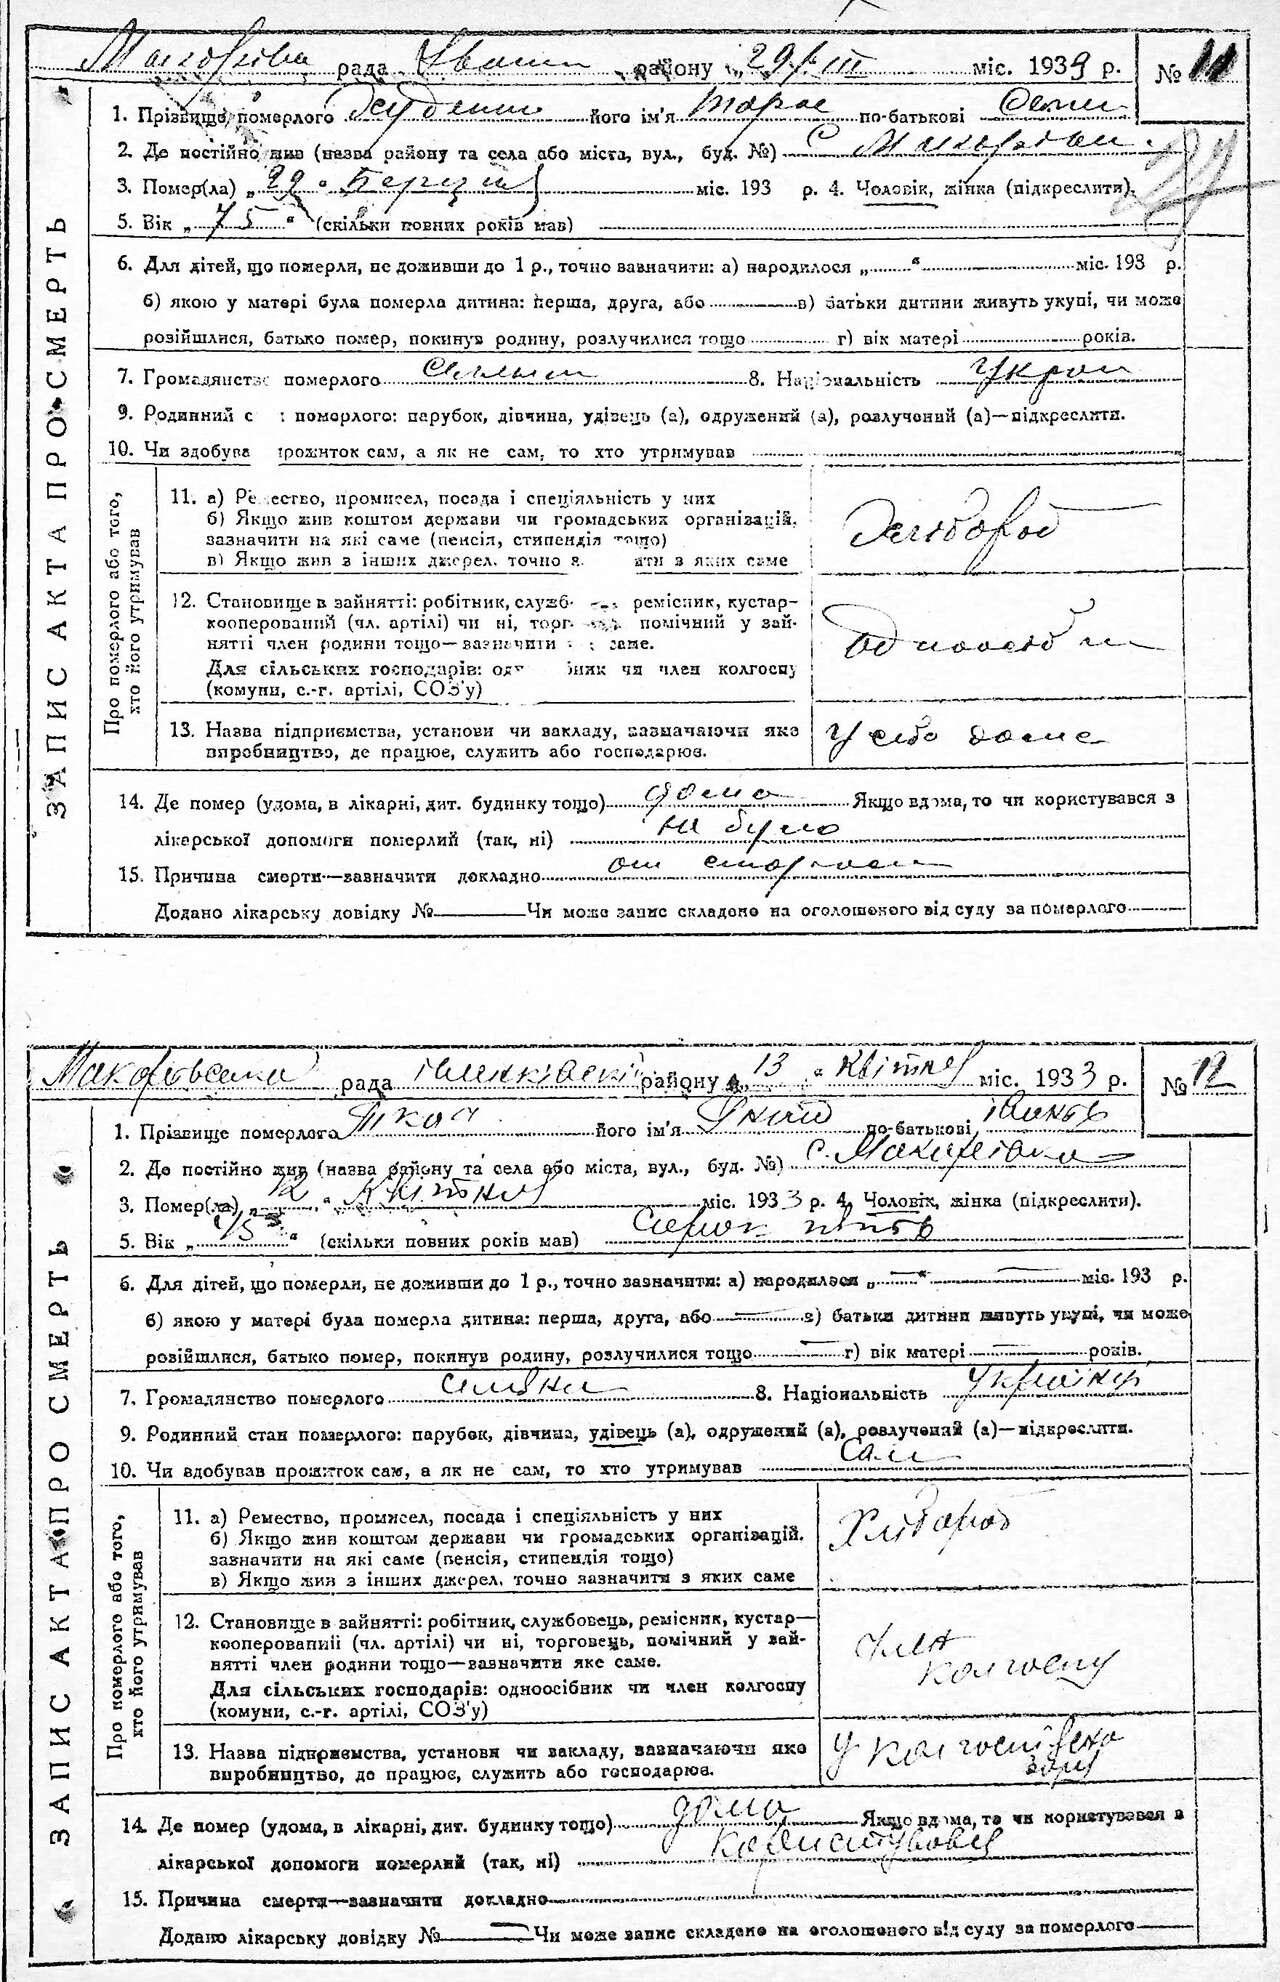 рада району „29" III міс. 1933 р. № 11
1. Прізвище померлого його ім'я Тарас по-батькові Семен
2. Де постійно жив (назва району та села або міста, вул., буд. №) с
3. Помер(ла) „29" Березня міс. 193 р. 4. Чоловік, жінка (підкреслити).
5. Вік „75" (скільки повних років мав)
6. Для дітей, що померли, не доживши до 1 р., точно зазначити: а) народилося „ " міс. 193 р.
б) якою у матері була померла дитина: перша, друга, або в) батьки дитини живуть укупі, чи може
розійшлися, батько помер, покинув родину, розлучилися тощо г) вік матері років.
7. Громадянств померлого 8. Національність Украи
9. Родинний с померлого: парубок, дівчина, удівець (а), одружений (а), розлучений (а)—підкреслити.
10. Чи здобува прожиток сам, а як не сам, то хто утримував
ЗАПИС АКТА ПРО СМЕРТЬ
Про померлого або того,
хто його утримував
11. а) Ре ество, промисел, посада і спеціяльність у них
б) Якщо жив коштом держави чи громадських організацій,
зазначити на які саме (пенсія, стипендія тощо)
в) Якщо жив з інших джерел, точно з ити з яких саме
Хлібороб
12. Становище в зайнятті: робітник, служб ремісник, кустар-
кооперований (чл. артілі) чи ні, торг помічний у зай-
нятті член родини тощо—зазначити саме.
Для сільських господарів: од бник чи член колгоспу
(комуни, с.-г. артілі, СОЗ'у)
13. Назва підприємства, установи чи закладу, зазначаючи яке
виробництво, де працює, служить або господарює.
у себе дома
14. Де помер (удома, в лікарні, дит. будинку тощо) дома Якщо вдома, то чи користувався з
лікарської допомоги померлий (так, ні) не було
15. Причина смерти—зазначити докладно от старости
Додано лікарську довідку № Чи може запис складено на оголошеного від суду за померлого
Макарівська рада Іванківський району „13" Квітня міс. 1933 р. № 12
1. Прізвище померлого Ткач його ім'я по-батькові
2. Де постійно жив (назва району та села або міста, вул., буд. №) с. Макарівка
3. Помер(ла) „12" Квітня міс. 1933 р. 4. Чоловік, жінка (підкреслити).
5. Вік „45" (скільки повних років мав) Сорок пять
6. Для дітей, що померли, не доживши до 1 р., точно зазначити: а) народилося „—" — міс. 193 р.
б) якою у матері була померла дитина: перша, друга, або — в) батьки дитини живуть укупі, чи може
розійшлися, батько помер, покинув родину, розлучилися тощо — г) вік матері — років.
7. Громадянство померлого 8. Національність Українец
9. Родинний стан померлого: парубок, дівчина, удівець (а), одружений (а), розлучений (а)—підкреслити.
10. Чи здобував прожиток сам, а як не сам, то хто утримував Сам
ЗАПИС АКТА ПРО СМЕРТЬ
Про померлого або того,
хто його утримував
11. а) Ремество, промисел, посада і спеціяльність у них
б) Якщо жив коштом держави чи громадських організацій,
зазначити на які саме (пенсія, стипендія тощо)
в) Якщо жив з інших джерел, точно зазначити з яких саме
Хлібороб
12. Становище в зайнятті: робітник, службовець, ремісник, кустар—
кооперований (чл. артілі) чи ні, торговець, помічний у зай-
нятті член родини тощо—зазначити яке саме.
Для сільських господарів: одноосібник чи член колгоспу
(комуни, с.-г. артілі, СОЗ'у)
член
колгоспу
13. Назва підприємства, установи чи закладу, зазначаючи яке
виробництво, де працює, служить або господарює.
у колгоспі
14. Де помер (удома, в лікарні, дит. будинку тощо) дома Якщо вдома, то чи користувався з
лікарської допомоги померлий (так, ні) користувався
15. Причина смерти—зазначити докладно
Додано лікарську довідку № — Чи може запис складено на оголошеного від суду за померлого